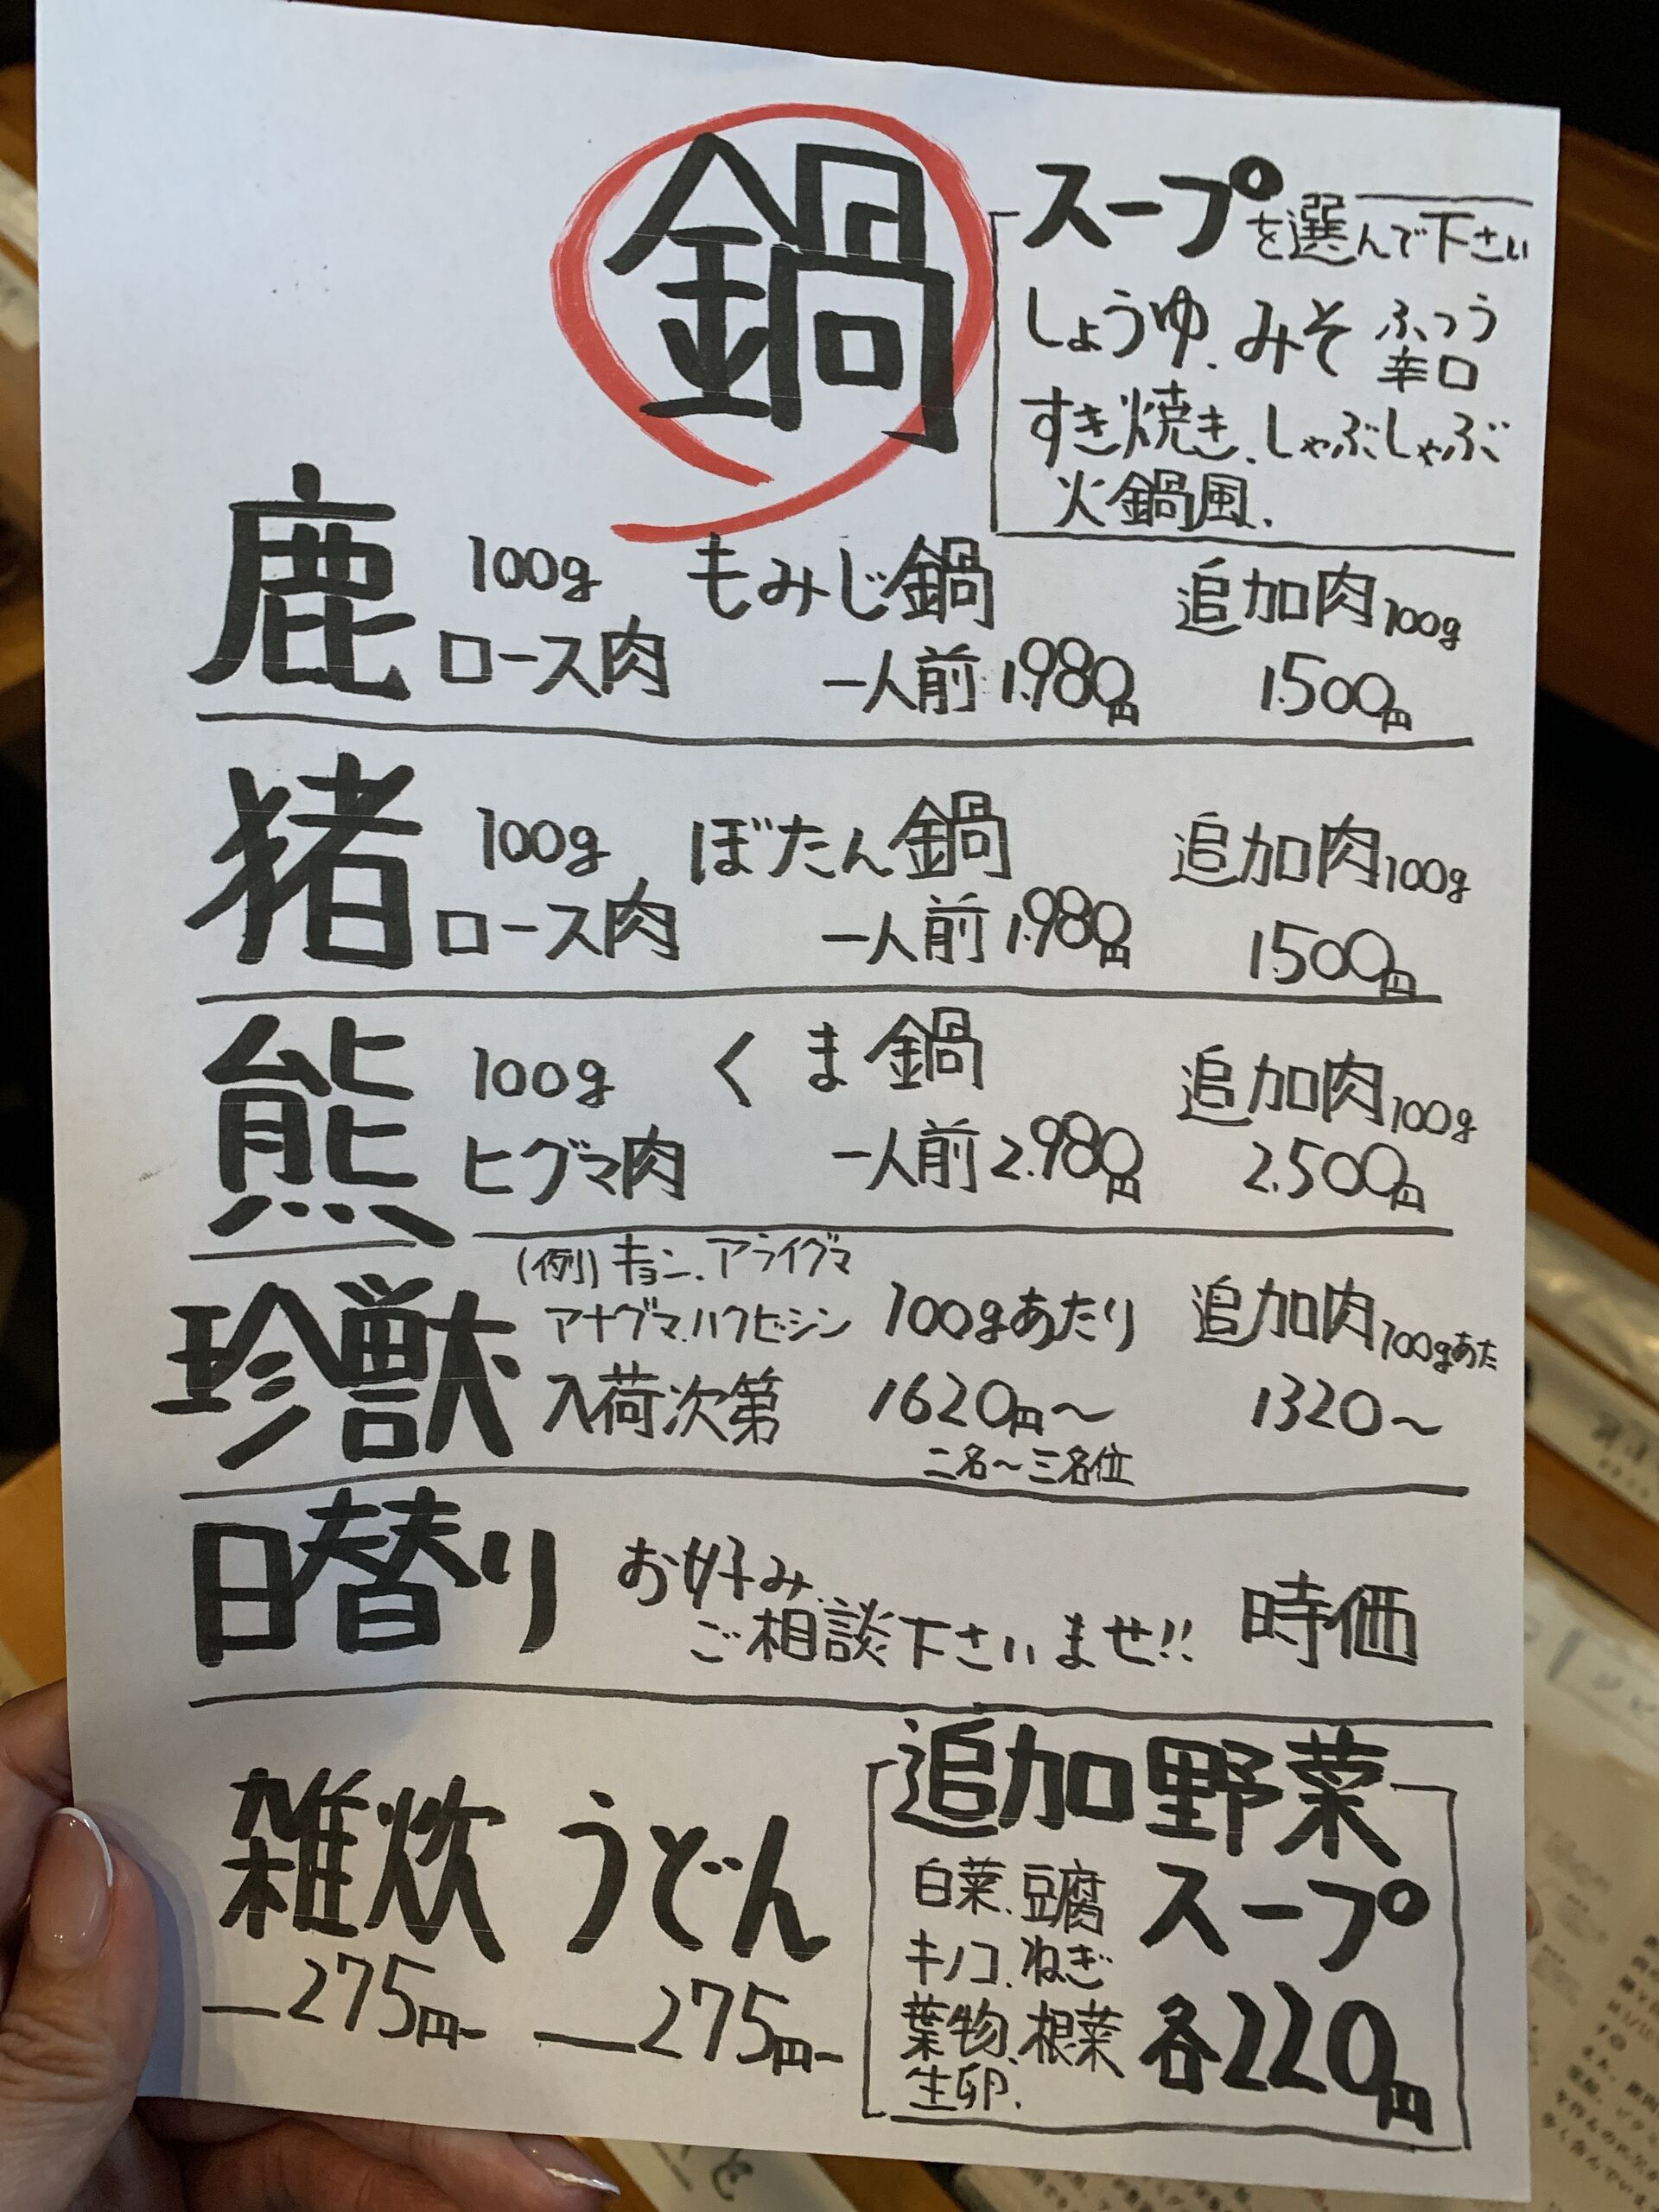 鍋
スープを選んで下さい
しょうゆ、みそ ふつう 辛口
すき焼き、しゃぶしゃぶ
火鍋風、
鹿 100g もみじ鍋 追加肉100g
ロース肉 一人前1,980円 1,500円
猪 100g ぼたん鍋 追加肉100g
ロース肉 一人前1,980円 1,500円
熊 100g くま鍋 追加肉100g
ヒグマ肉 一人前2,980円 2,500円
珍獣 (例)キョン、アライグマ
アナグマ、ハクビシン 100gあたり 追加肉100gあた
入荷次第 1620円〜 1320〜
二名〜三名位
日替り お好み、
ご相談下さいませ!! 時価
雑炊 うどん
275円 275円
追加野菜
白菜、豆腐 スープ
キノコ、ねぎ
葉物、根菜 各220円
生卵、